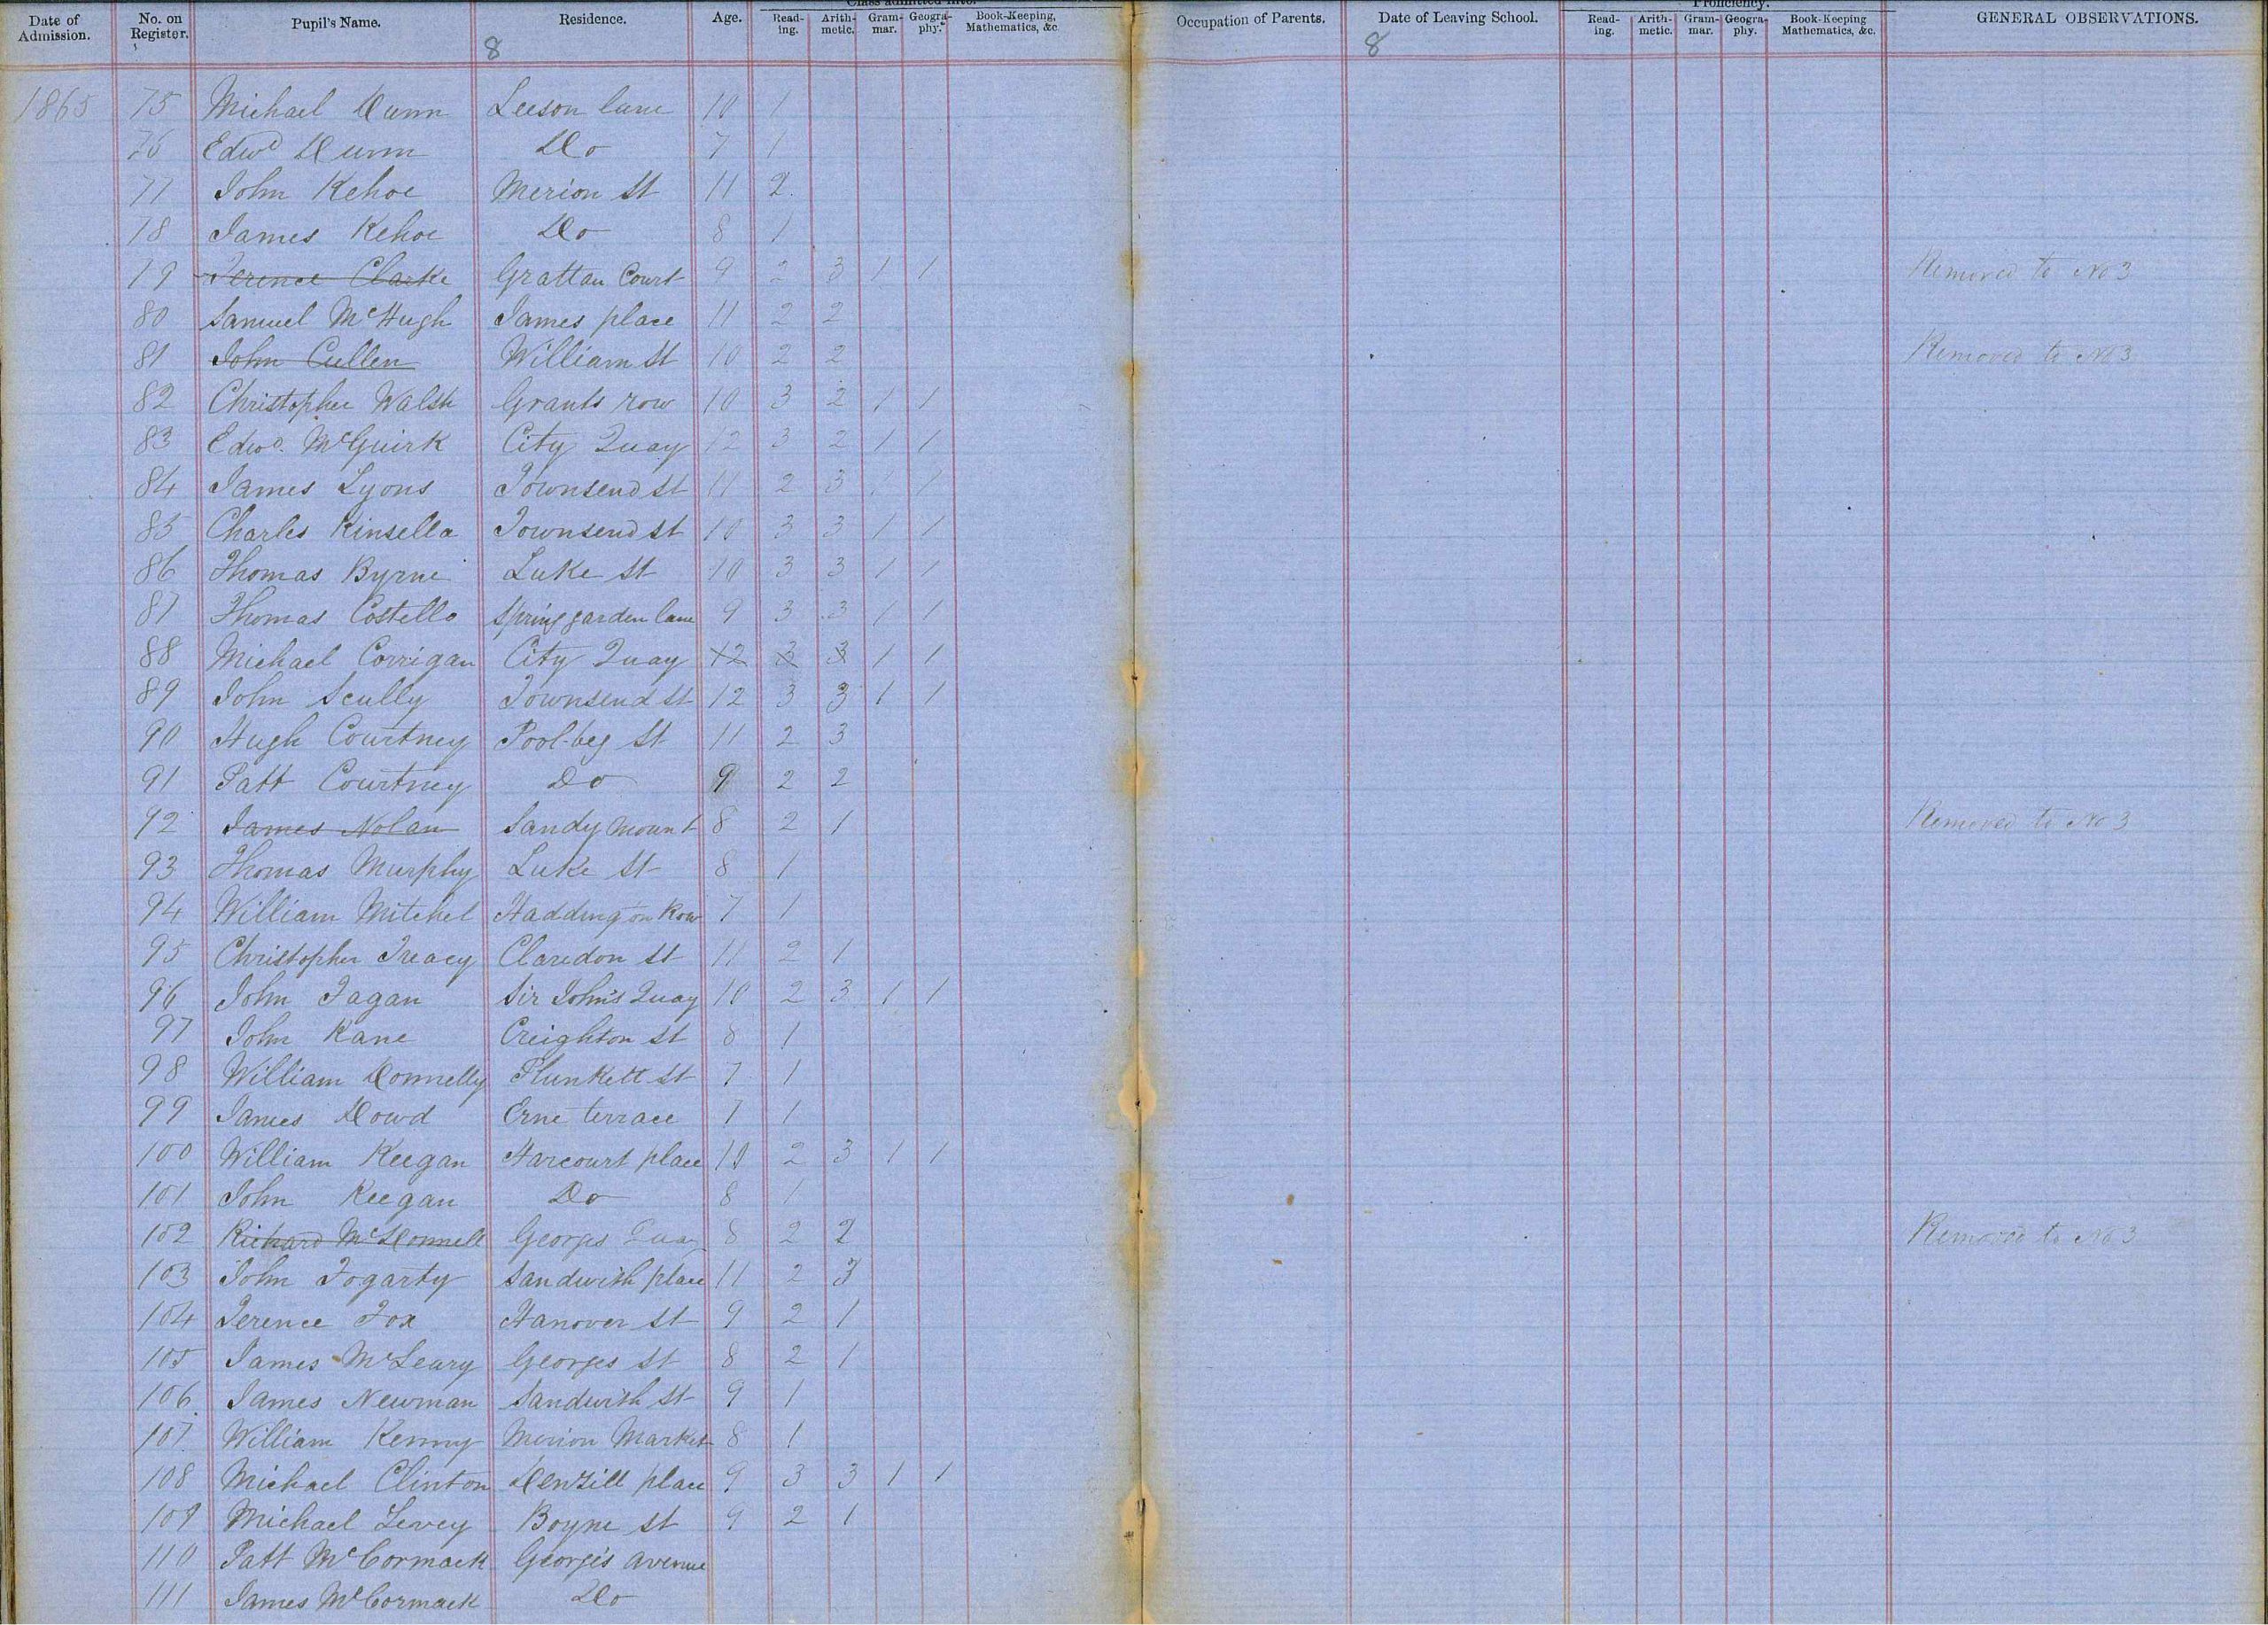 Date of Admission. No. on Register. Pupil's Name. Residence. Age. Class admitted into. Read-ing. Arith-metic. Gram-mar. Geogra-phy. Book-Keeping, Mathematics, &c. Occupation of Parents. Date of Leaving School. Proficiency. Read-ing. Arith-metic. Gram-mar. Geogra-phy. Book-Keeping Mathematics, &c. GENERAL OBSERVATIONS.
8 8
1865 75 Michael Dunn Leeson lane 10 1
76 Edwd Dunn Do 7 1
77 John Kehoe Merion St 11 2
78 James Kehoe Do 8 1
79 Terence Clarke Grattan Court 9 2 3 1 1 Removed to No 3
80 Samuel McHugh James place 11 2 2
81 John Cullen William St 10 2 2 Removed to No 3
82 Christopher Walsh Grants row 10 3 2 1 1
83 Edwd. McGuirk City Quay 12 3 2 1 1
84 James Lyons Townsend st 11 2 3 1 1
85 Charles Kinsella Townsend st 10 3 3 1 1
86 Thomas Byrne Luke St 10 3 3 1 1
87 Thomas Costello Spring garden lane 9 3 3 1 1
88 Michael Corrigan City Quay 12 3 3 1 1
89 John Scully Townsend st 12 3 3 1 1
90 Hugh Courtney Pool-beg St 11 2 3
91 Patt Courtney Do 9 2 2
92 James Nolan Sandy mount 8 2 1 Removed to No 3
93 Thomas Murphy Luke St 8 1
94 William Mitchel Haddington Row 7 1
95 Christopher Treacy Claredon St 11 2 1
96 John Fagan Sir John's Quay 10 2 3 1 1
97 John Kane Creighton st 8 1
98 William Donnelly Plunkett st 7 1
99 James Dowd Erne terrace 7 1
100 William Keegan Harcourt place 10 2 3 1 1
101 John Keegan Do 8 1
102 Richard McDonnell Georges Quay 8 2 2 Removed to No 3
103 John Fogarty Sandwith place 11 2 3
104 Terence Fox Hanover St 9 2 1
105 James McLeary Georges St 8 2 1
106 James Newman Sandwith St 9 1
107 William Kenny Merion Market 8 1
108 Michael Clinton Denzill place 9 3 3 1 1
109 Michael Levey Boyne st 9 2 1
110 Patt McCormack George's avenue
111 James McCormack Do